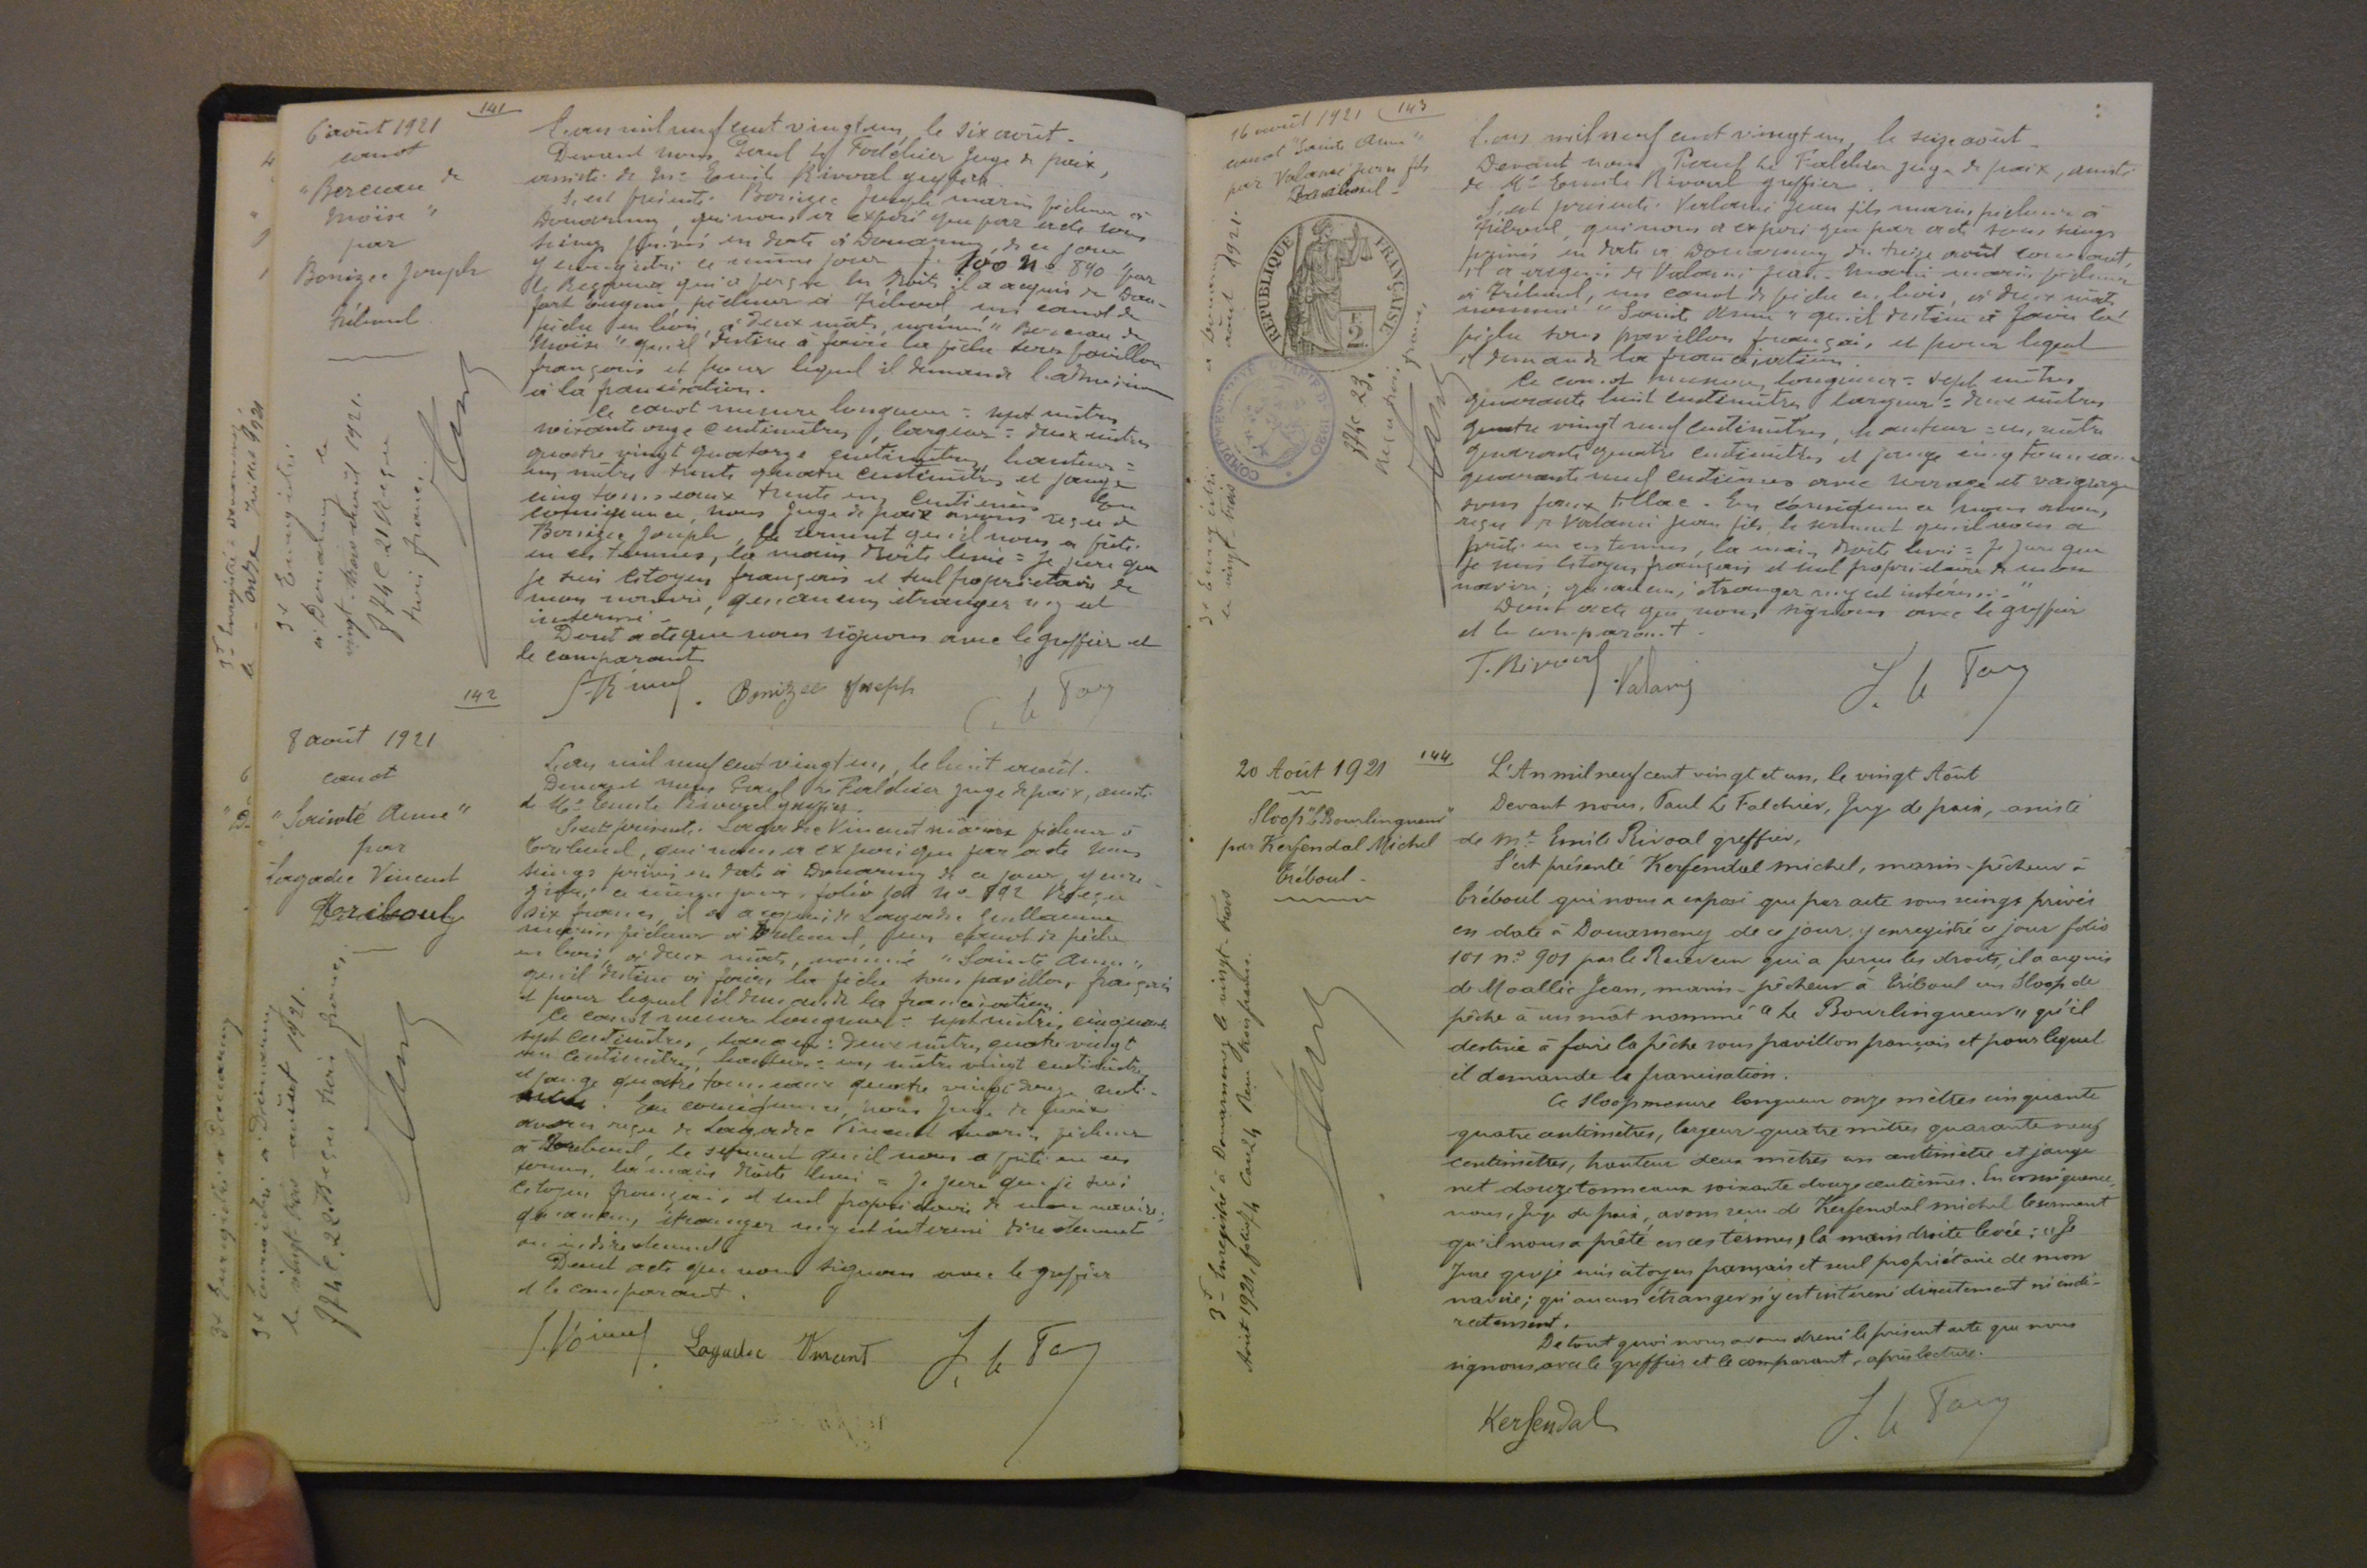 141
6 août 1921
canot
"Berceau de
Moïse"
par
Bonizec Joseph
Tréboul
L'an mil neuf cent vingt un, le six août.
Devant nous Paul Le Falchier Juge de paix,
assisté de Me Emile Rivoal greffier.
S'est présenté Bonizec Joseph marin pêcheur à
Douarnenez, qui nous a exposé que par acte sous
seings privés en date à Douarnenez, de ce jour
y enregistré ce même jour fo 100 No 890 par
le Receveur qui a perçu les droits il a acquis de
Eugène, pêcheur à Tréboul, un canot de
pêche en bois, à deux mâts, nommé "Berceau de
Moïse" qu'il destine à faire la pêche sous pavillon
français et pour lequel il demande l'admission
à la francisation.
Ce canot mesure longueur = sept mètres
soixante onze centimètres, largeur = deux mètres
quatre vingt quatorze centimètres, hauteur =
un mètre trente quatre centimètres et jauge
cinq tonneaux trente un centièmes En
conséquence, nous Juge de paix avons reçu de
Bonizec Joseph, le serment qu'il nous a prêté
en ces termes, la main droite levée = Je jure que
je suis citoyen français et seul propriétaire de
mon navire, qu'aucun étranger n'y est
intéressé.
Dont acte que nous signons avec le greffier et
le comparant
Bonizec Joseph
3t Enregistré
à Douarnenez le
vingt-trois août 1921.
f 74 c 21 Reçu
trois francs
142
8 août 1921
canot
"Sainte Anne"
par
Lagadic Vincent
Tréboul
L'an mil neuf cent vingt un, le huit août.
Devant nous Paul Le Falchier Juge de paix, assisté
de Me Emile Rivoal greffier.
S'est présenté Lagadic Vincent marin pêcheur à
Tréboul, qui nous a exposé que par acte sous
seings privés en date à Douarnenez de ce jour, y enre-
gistré ce même jour, folio 100 No 892 Reçu
six francs, il a acquis de Lagadic Guillaume
marin pêcheur à Tréboul, un canot de pêche
en bois, à deux mâts, nommé "Sainte Anne",
qu'il destine à faire la pêche sous pavillon français
et pour lequel il demande la francisation
Ce canot mesure longueur = sept mètres cinquante
sept centimètres, largeur = deux mètres quatre vingt
un centimètres, hauteur = un mètre vingt centimètres
et jauge quatre tonneaux quatre vingt douze centi-
En conséquence, nous Juge de paix
avons reçu de Lagadic Vincent marin pêcheur
à Tréboul, le serment qu'il nous a prêté en ces
termes, la main droite levée = Je jure que je suis
citoyen français et seul propriétaire de mon navire;
qu'aucun étranger n'y est intéressé directement
ou indirectement.
Dont acte que nous signons avec le greffier
et le comparant.
Lagadic Vincent
3t enregistré à Douarnenez
le vingt trois août 1921.
f 74 c. 22 Reçu trois francs
143
16 août 1921
canot "Sainte Anne"
par Valanie jean fils
Tréboul
REPUBLIQUE FRANÇAISE
L'an mil neuf cent vingt un, le seize août
Devant nous Paul Le Falchier Juge de paix, assisté
de Me Emile Rivoal greffier.
S'est présenté Jean fils marin pêcheur à
Tréboul, qui nous a exposé que par acte sous seings
privés en date à Douarnenez du treize août courant,
il a acquis de marin pêcheur
à Tréboul, un canot de pêche en bois, à deux mâts
nommé "Sainte Anne" qu'il destine à faire la
pêche sous pavillon français et pour lequel
il demande la francisation
Ce canot mesure, longueur = sept mètres
quarante huit centimètres largeur = deux mètres
quatre vingt neuf centimètres, hauteur = un mètre
quarante quatre centimètres et jauge cinq tonneaux
quarante neuf centièmes avec serrage et vaigrage
sans faux tillac. En conséquence nous avons
reçu de jean fils, le serment qu'il nous a
prêté en ces termes, la main droite levée = Je jure que
je suis citoyen français et seul propriétaire de mon
navire; qu'aucun étranger n'y est intéressé."
Dont acte que nous signons avec le greffier
et le comparant.
144
20 Août 1921
Sloop "Le Bourlingueur"
par Kersendal Michel
Tréboul.
L'An mil neuf cent vingt et un, le vingt Août
Devant nous, Paul Le Falchier, Juge de paix, assisté
de Me Emile Rivoal greffier,
S'est présenté Kersendal Michel, marin-pêcheur à
Tréboul qui nous a exposé que par acte sous seings privés
en date à Douarnenez de ce jour, y enregistré ce jour folio
101 no 901 par le Receveur qui a perçu les droits, il a acquis
de Moallic Jean, marin-pêcheur à Tréboul un Sloop de
pêche à un mât nommé "Le Bourlingueur" qu'il
destine à faire la pêche sous pavillon français et pour lequel
il demande la francisation.
Ce Sloop mesure longueur onze mètres cinquante
quatre centimètres, largeur quatre mètres quarante neuf
centimètres, hauteur deux mètres un centimètre et jauge
net douze tonneaux soixante douze centièmes. En conséquence,
nous, Juge de paix, avons reçu de Kersendal Michel le serment
qu'il nous a prêté en ces termes, la main droite levée: "Je
Jure que je suis citoyen français et seul propriétaire de mon
navire; qu'aucun étranger n'y est intéressé directement ni indi-
rectement.
De tout quoi nous avons dressé le présent acte que nous
signons avec le greffier et le comparant, après lecture.
Kersendal
3t Enregistré à Douarnenez le vingt-trois
Août 1921, folio 74 Case 24 Reçu trois francs.